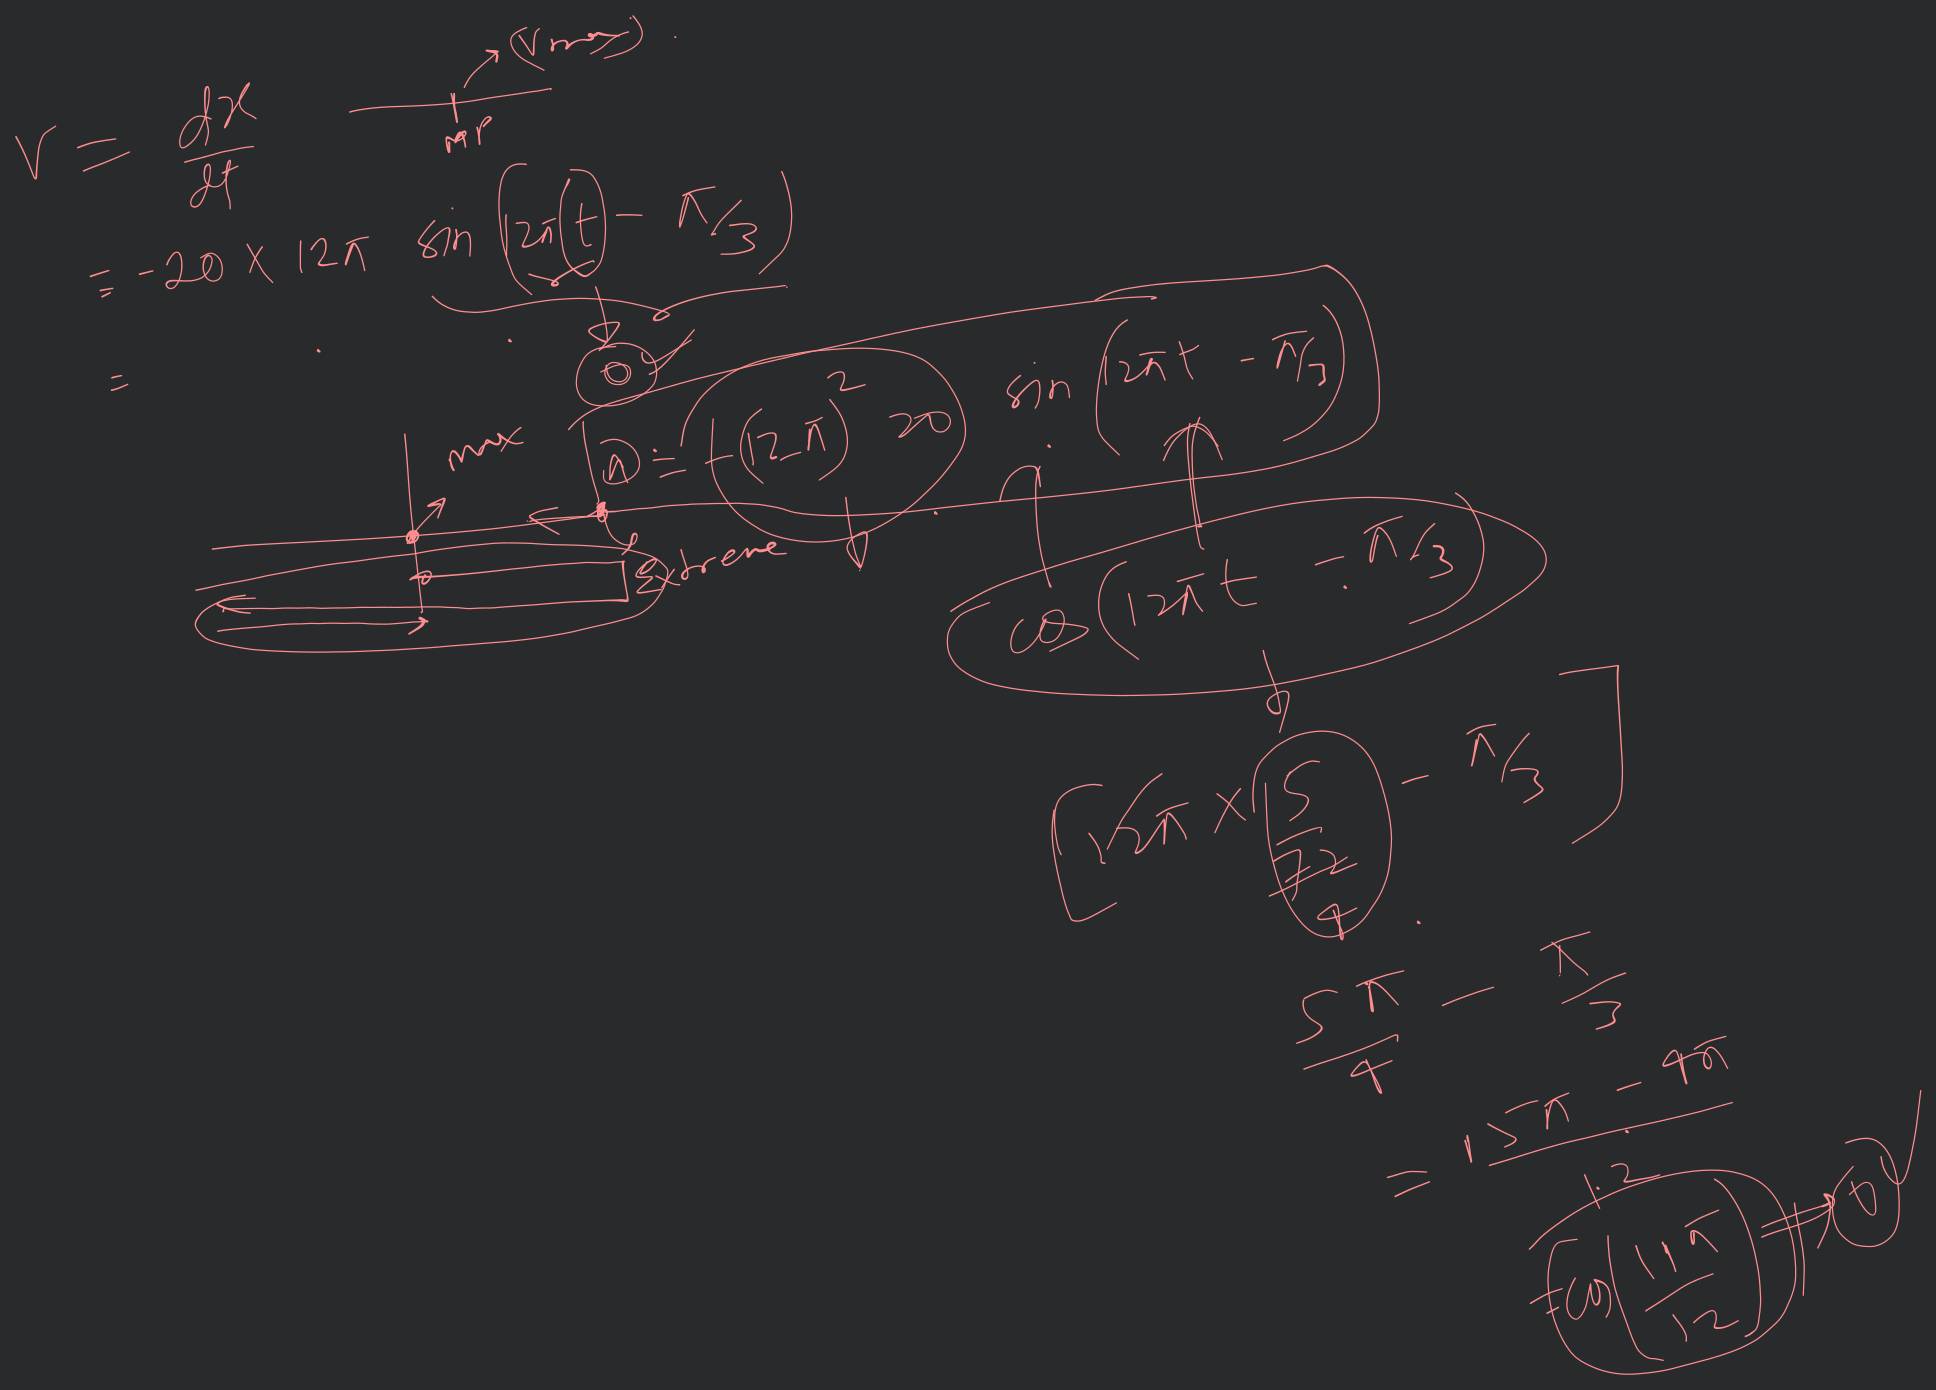 (Vmax)
V = dx/dt
MP
= -20 × 12π sin (12π t - π/3)
=
0
max
a = -(12π)² 20 sin (12πt - π/3)
extreme
cos (12πt - π/3)
[12π × 5/72 - π/3]
4
5π/4 - π/3
= 15π - 4π / 12
= cos (11π/12)